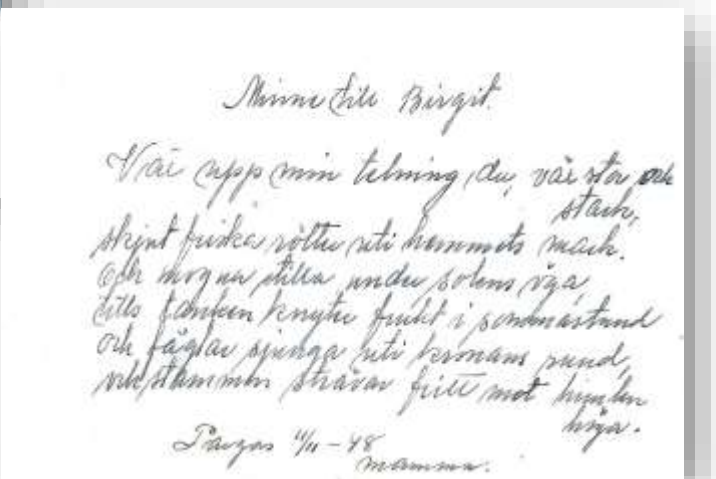 Minne till Birgit.
Väx upp min telning, du, väx stor och
stark,
skjut friska rötter uti hemmets mark.
Och mogna stilla under solens öga,
tills tanken knyter frukt i sommarstund
och fåglar sjunga uti kronans rund,
och stammen strävar fritt mot himlen
höga.
Pargas 11/11 - 48
mamma.